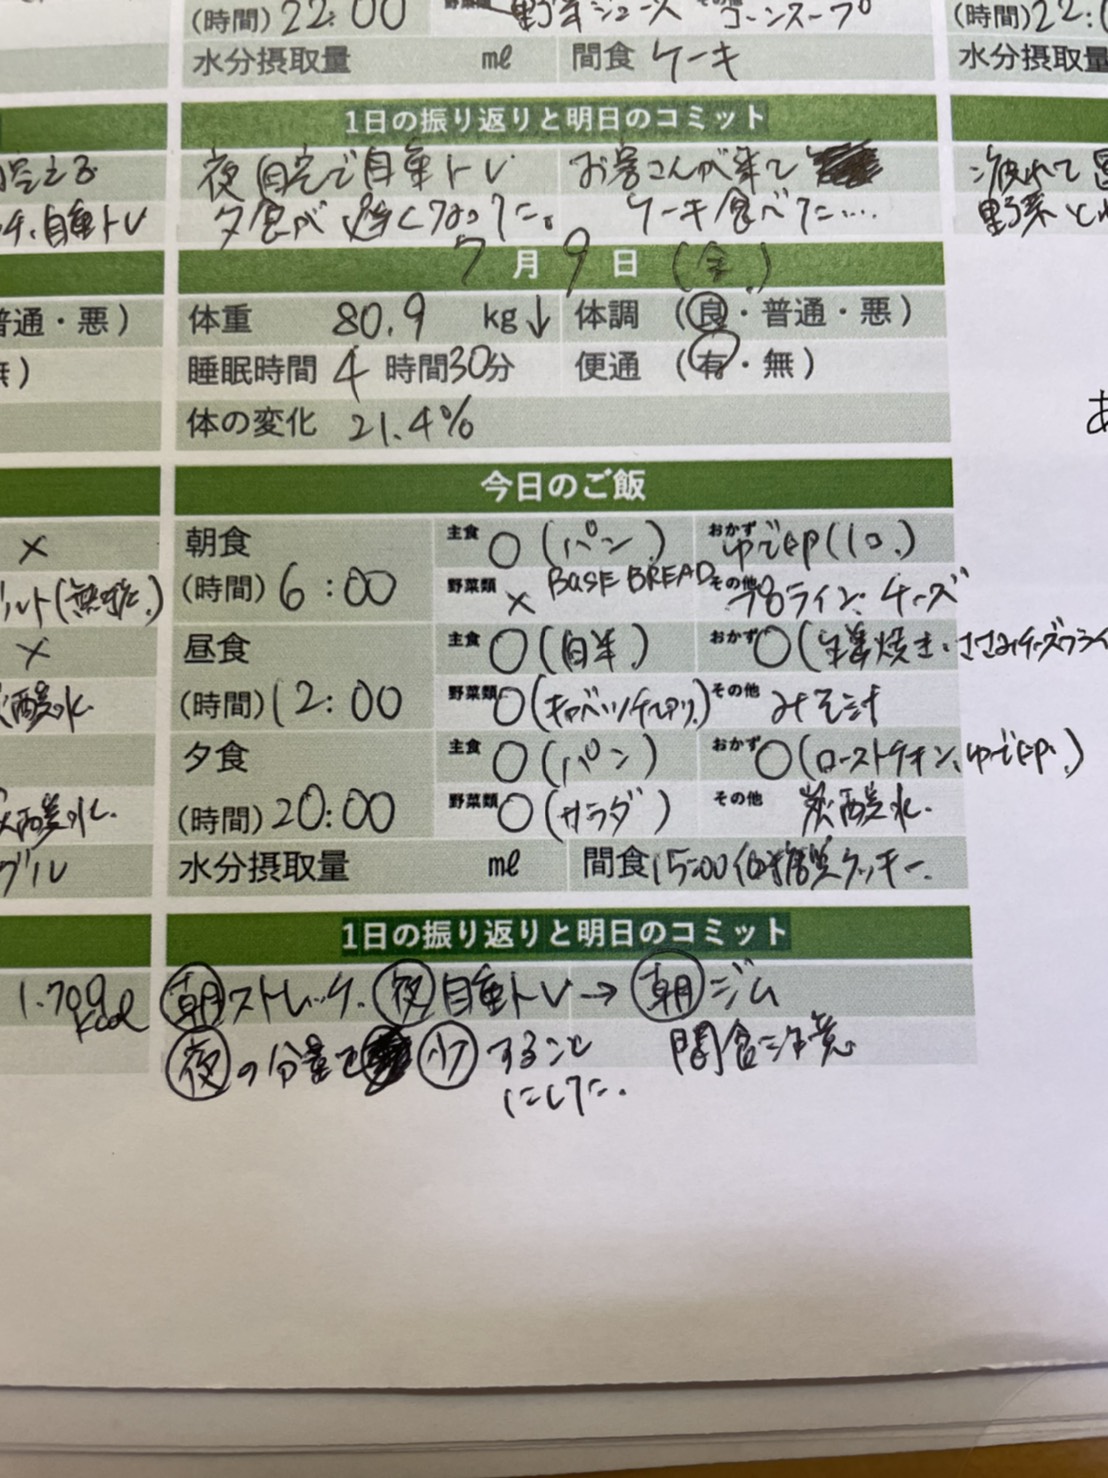 (時間) 22:00 野菜類 野菜ジュース その他 コーンスープ
(時間) 22:
水分摂取量 ml 間食 ケーキ
水分摂取量
1日の振り返りと明日のコミット
夜 自宅で自重トレ お客さんが来て
疲れて
自重トレ
夕食が 遅くなった。 ケーキ食べた….
野菜
7月9日(金)
普通・悪)
体重 80.9 kg↓ 体調 (良・普通・悪)
無)
睡眠時間 4 時間30分 便通 (有・無)
体の変化 21.4%
あ
今日のご飯
×
朝食 主食 〇(パン) おかず ゆで卵(1コ)
(時間) 6:00 野菜類 × BASE BREAD その他 プロテイン、チーズ
ルト(無糖)
×
昼食 主食 〇(白米) おかず 〇(生姜焼き・ささみチーズフライ
炭酸水.
(時間) 12:00 野菜類 〇(キャベツ その他 みそ汁
夕食 主食 〇(パン) おかず 〇(ローストチキン、ゆで卵)
炭酸水.
(時間) 20:00 野菜類 〇(サラダ) その他 炭酸水.
グル
水分摂取量 ml 間食 15:00 低糖質クッキー.
1日の振り返りと明日のコミット
1.700kcal
朝ストレッチ. 夜自重トレ→朝ジム
夜の分量を 少 すること 間食に注意
にした.